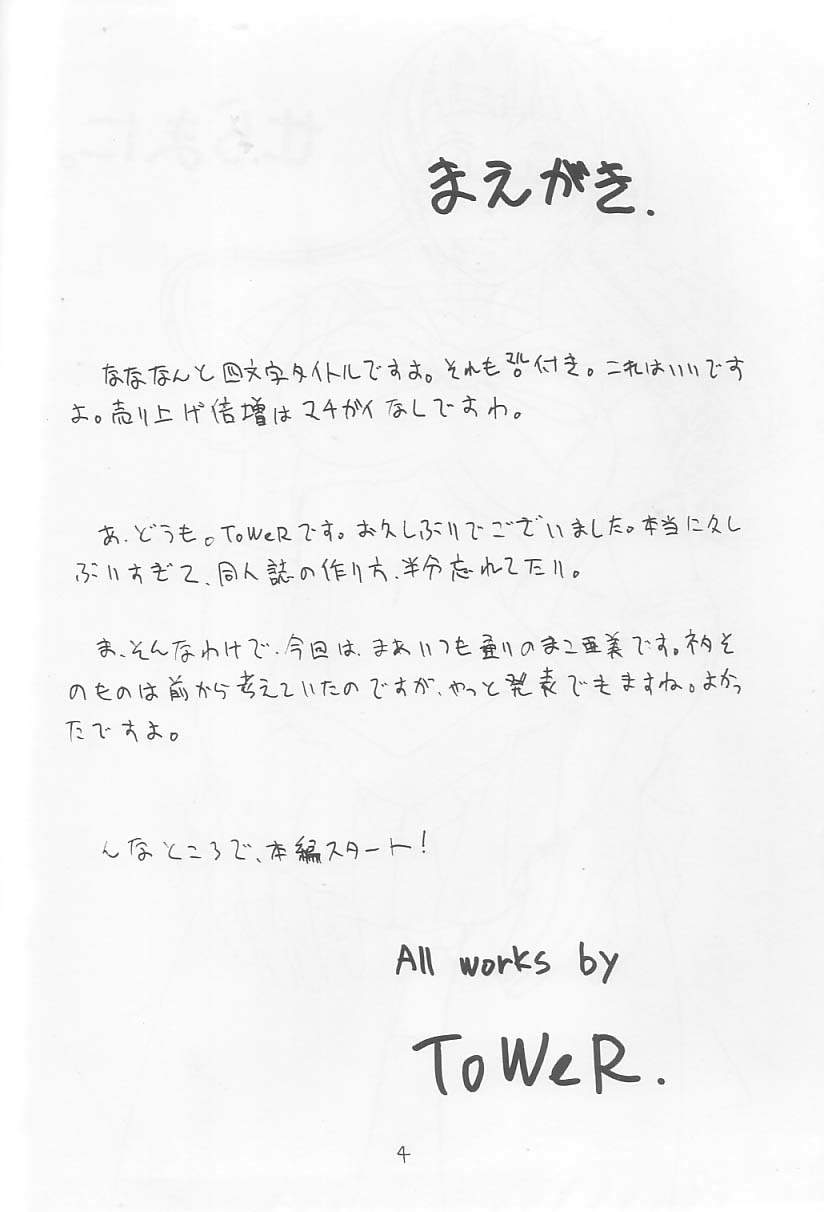 まえがき.
なななんと四文字タイトルですよ。それも マル 付き。これはいいです
よ。売り上げ倍増はマチガイなしですわ。
あ、どうも。ToWeRです。お久しぶりでございました。本当に久し
ぶりすぎて、同人誌の作り方、半分忘れてたり。
ま、そんなわけで、今回は、まあいつも通りのまこ亜美です。ネタそ
のものは前から考えていたのですが、やっと発表できますね。よかっ
たですよ。
んなところで、本編スタート!
All works by
ToWeR.
4